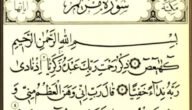 سورة مريم
بسم الله الرحمن الرحيم
كهيعص ذكر رحمت ربك عبده زكريا إذ نادى
ربه نداء خفيا قال رب إنى وهن العظم منى و